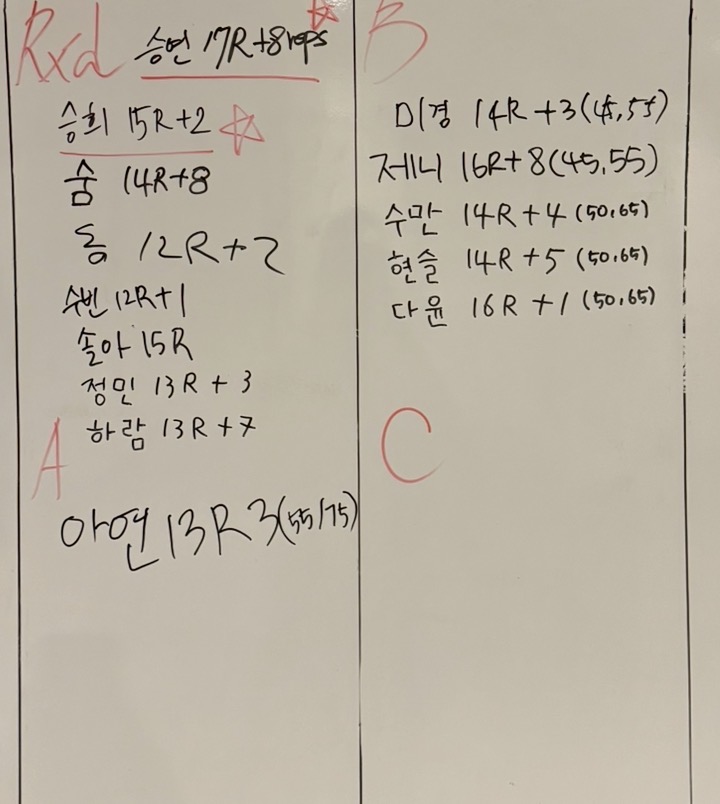 Rxd 승연 17R+8reps
승희 15R+2
숨 14R+8
동 12R+2
수빈 12R+1
솔아 15R
정민 13R + 3
하람 13R +7
A
아연 13R 3(55/75)
B
미경 14R +3(45,55)
제니 16R+8(45,55)
수만 14R+4 (50,65)
현슬 14R+5 (50,65)
다윤 16R +1 (50,65)
C